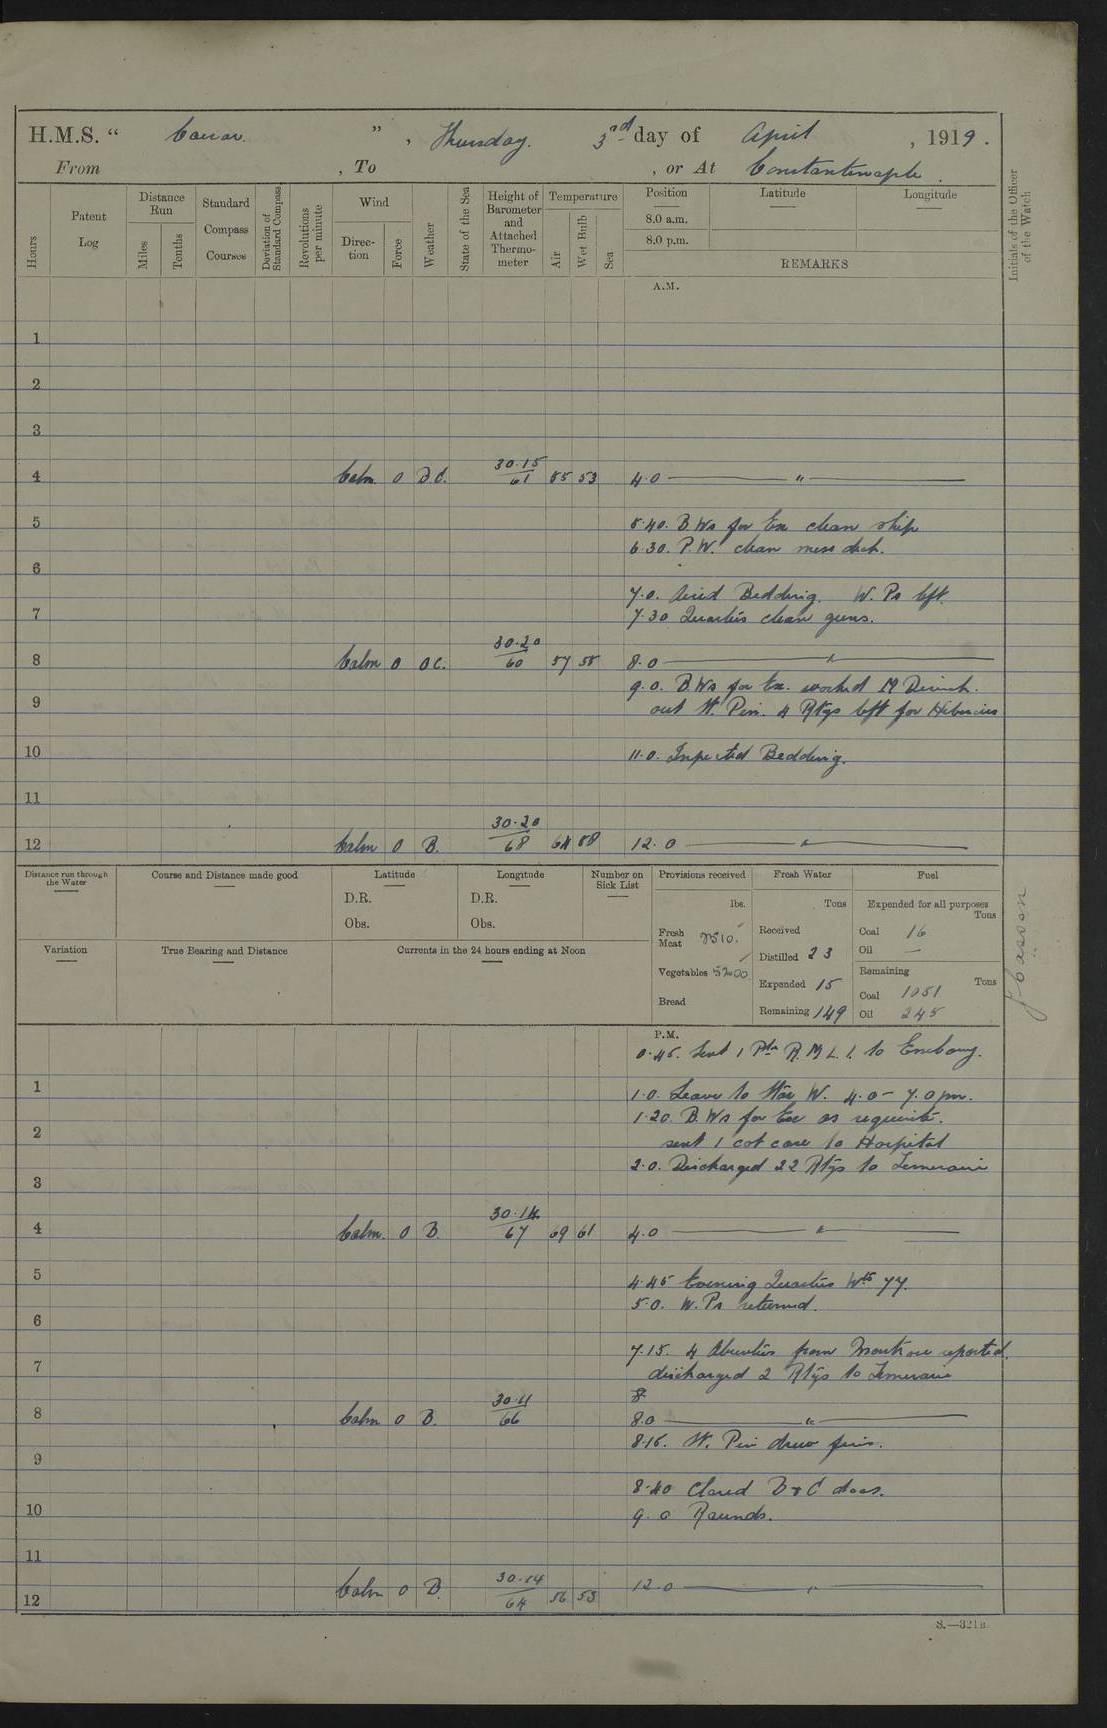 H.M.S. “ Caesar. ” , Thursday. 3rd day of April , 1919 .
From , To , or At Constantinople .
Hours
Patent Log
Distance Run
Miles
Tenths
Standard Compass Courses
Deviation of Standard Compass
Revolutions per minute
Wind
Direction
Force
Weather
State of the Sea
Height of Barometer and Attached Thermometer
Temperature
Air
Wet Bulb
Sea
Position Latitude Longitude
8.0 a.m.
8.0 p.m.
REMARKS
Initials of the Officer of the Watch
A.M.
1
2
3
4 Calm 0 30.15 61 55 53 4.0 "
5 5.40. B.Ws for Ex clean ship
6.30. P.W. clean mess deck.
6
7.0. Aired Bedding. W. Ps left.
7 7.30 Quarters clean guns.
8 Calm 0 OC. 30.20 60 57 55 8.0 "
9.0. B.Ws for Ex. worked
9 out St. Pin. 4 Rtgs left for Hibernia
10 11.0. Inspected Bedding.
11
12 Calm 0 B. 30.20 68 64 58 12.0 "
Distance run through the Water
Course and Distance made good
Latitude
D.R.
Obs.
Longitude
D.R.
Obs.
Number on Sick List
Variation
True Bearing and Distance
Currents in the 24 hours ending at Noon
Provisions received
lbs.
Fresh Meat 2510.
Vegetables 5200
Bread
Fresh Water
Tons
Received
Distilled 23
Expended 15
Remaining 149
Fuel
Expended for all purposes
Tons
Coal 16
Oil —
Remaining
Tons
Coal 1051
Oil 245
P.M.
0.45. Sent 1 Pte R.M.L.I. to
1 1.0. Leave to Star W. 4.0 – 7.0 pm.
1.20. B.Ws for Ex as requisite.
2 sent 1 cot case to Hospital
2.0. Discharged 22 Rtgs to Temeraire
3
4 Calm. 0 B. 30.14 67 69 61 4.0 "
5 4.45 Evening Quarters
5.0. W.Ps returned.
6
7.15. 4 Absentees from Montrose reported.
7 discharged 2 Rtgs to Temeraire
8
8 Calm 0 B. 30.11 66 8.0 "
8.15. St. Pin drew fires.
9
8.40 Closed B & C doors.
10 9.0 Rounds.
11
12 Calm 0 B. 30.14 64 56 53 12.0 "
S.—321B